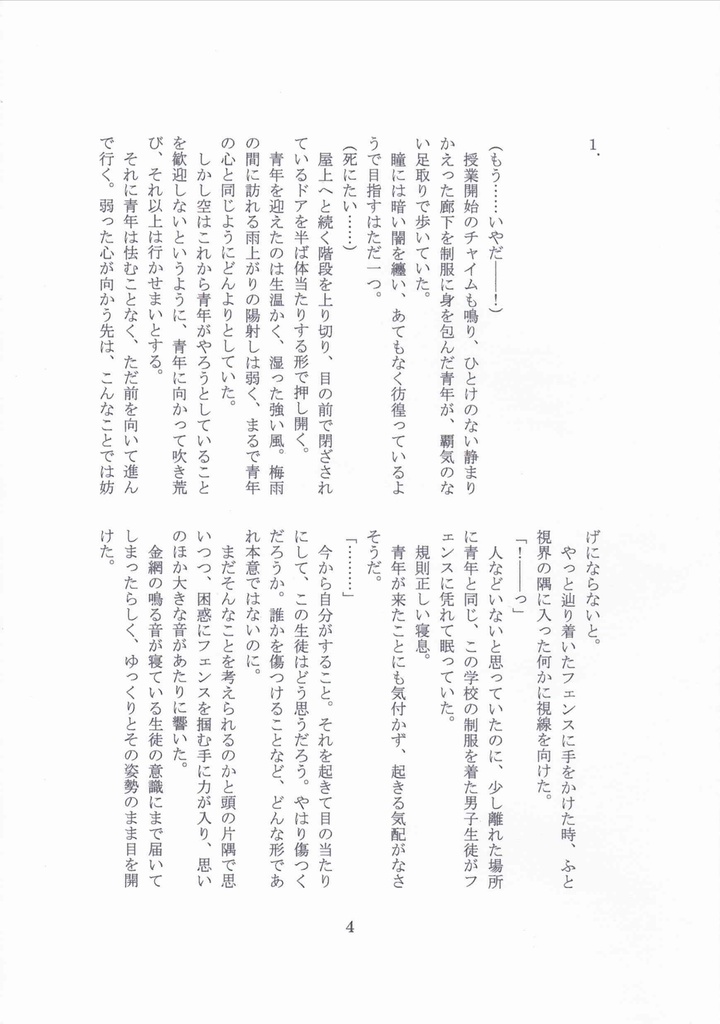 1.
(もう……いやだ――！)
　授業開始のチャイムも鳴り、ひとけのない静まり
かえった廊下を制服に身を包んだ青年が、覇気のな
い足取りで歩いていた。
　瞳には暗い闇を纏い、あてもなく彷徨っているよ
うで目指すはただ一つ。
(死にたい……)
　屋上へと続く階段を上り切り、目の前で閉ざされ
ているドアを半ば体当たりする形で押し開く。
　青年を迎えたのは生温かく、湿った強い風。梅雨
の間に訪れる雨上がりの陽射しは弱く、まるで青年
の心と同じようにどんよりとしていた。
　しかし空はこれから青年がやろうとしていること
を歓迎しないというように、青年に向かって吹き荒
び、それ以上は行かせまいとする。
　それに青年は怯むことなく、ただ前を向いて進ん
で行く。弱った心が向かう先は、こんなことでは妨
げにならないと。
　やっと辿り着いたフェンスに手をかけた時、ふと
視界の隅に入った何かに視線を向けた。
「！――っ」
　人などいないと思っていたのに、少し離れた場所
に青年と同じ、この学校の制服を着た男子生徒がフ
ェンスに凭れて眠っていた。
　規則正しい寝息。
　青年が来たことにも気付かず、起きる気配がなさ
そうだ。
「………」
　今から自分がすること。それを起きて目の当たり
にして、この生徒はどう思うだろう。やはり傷つく
だろうか。誰かを傷つけることなど、どんな形であ
れ本意ではないのに。
　まだそんなことを考えられるのかと頭の片隅で思
いつつ、困惑にフェンスを掴む手に力が入り、思い
のほか大きな音があたりに響いた。
　金網の鳴る音が寝ている生徒の意識にまで届いて
しまったらしく、ゆっくりとその姿勢のまま目を開
けた。
4